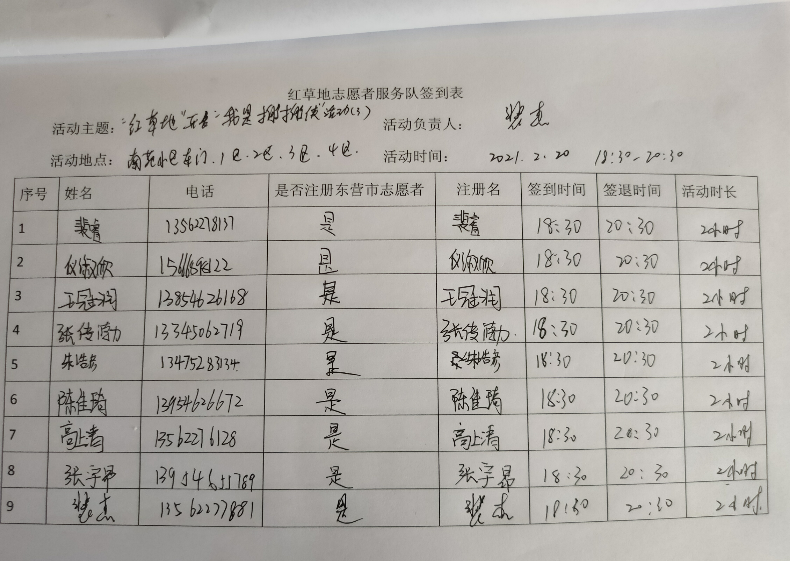 红草地志愿者服务队签到表
活动主题："红草地" 我是 活动(3) 活动负责人: 裴杰
活动地点: 南苑小区东门、1区、2区、3区、4区 活动时间: 2021.2.20 18:30-20:30
序号 姓名 电话 是否注册东营市志愿者 注册名 签到时间 签退时间 活动时长
1 裴睿 13562278137 是 裴睿 18:30 20:30 2小时
2 仪淑欣 是 仪淑欣 18:30 20:30 2小时
3 王冠润 13854626168 是 王冠润 18:30 20:30 2小时
4 张传 13345062719 是 张传 18:30 20:30 2小时
5 朱浩 13475283134 是 朱浩 18:30 20:30 2小时
6 陈佳琦 13954626672 是 陈佳琦 18:30 20:30 2小时
7 高上清 13562276128 是 高上清 18:30 20:30 2小时
8 张宇昂 是 张宇昂 18:30 20:30 2小时
9 裴杰 13562277881 是 裴杰 18:30 20:30 2小时